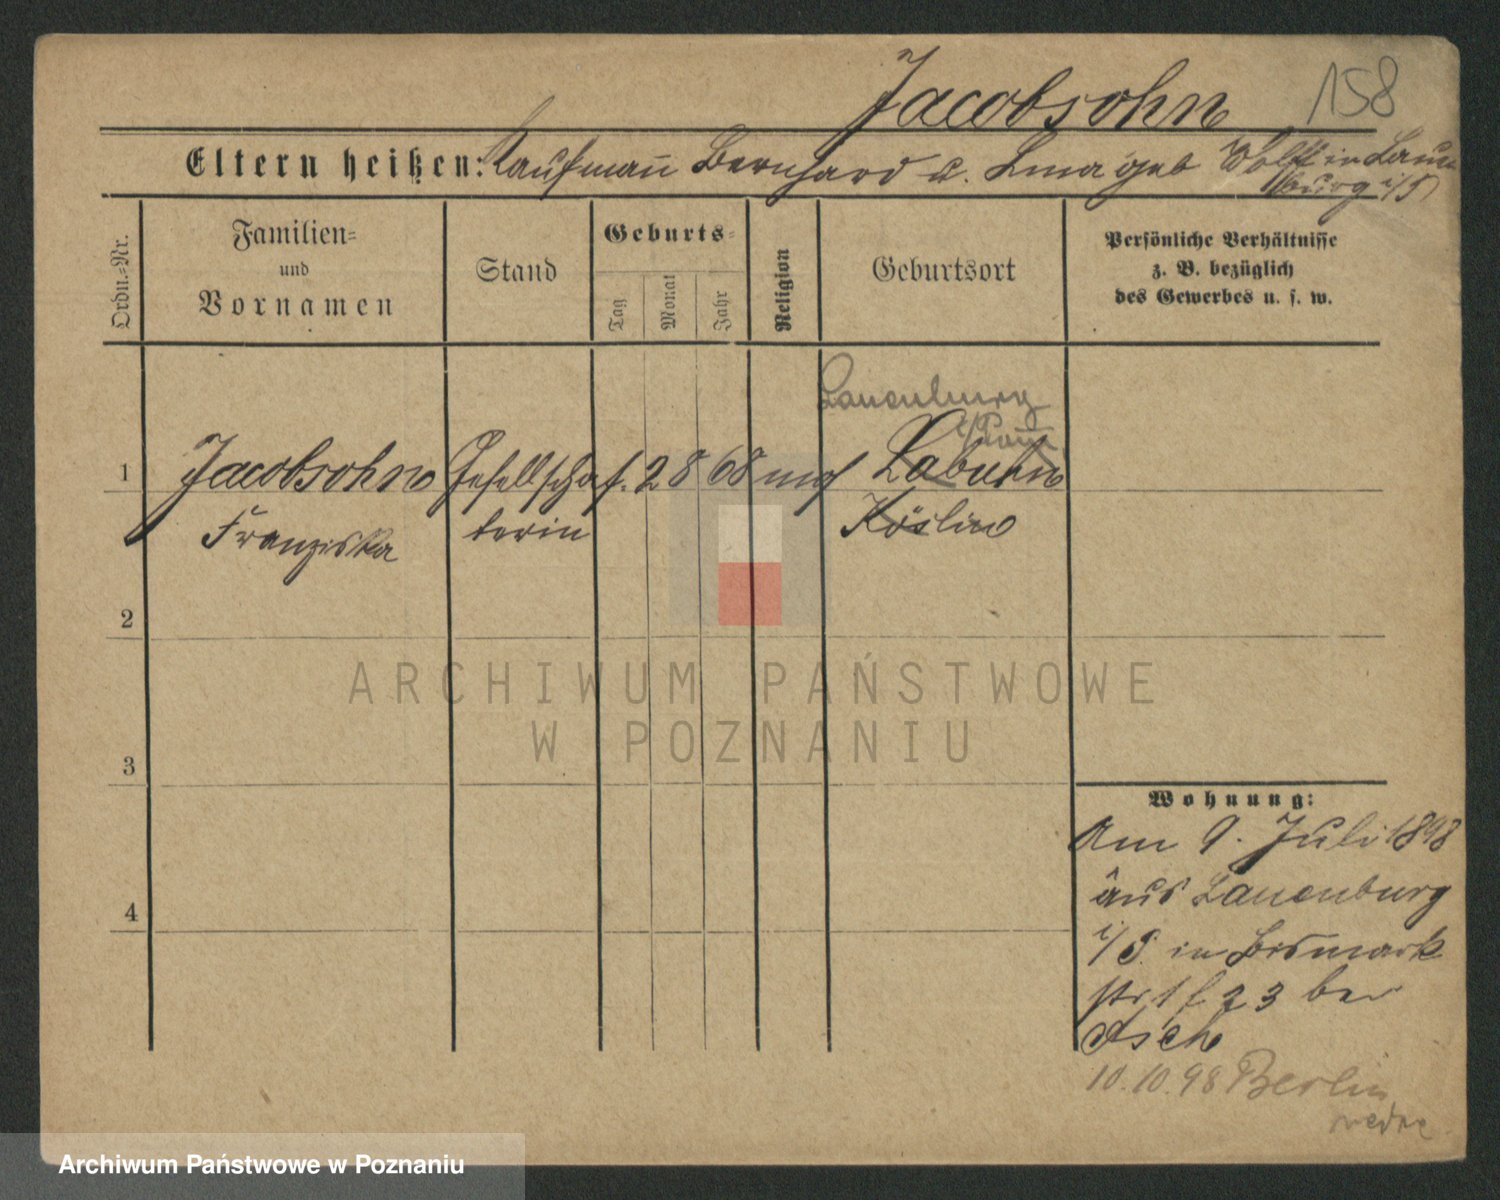 Jacobsohn 158
Eltern heißen: Kaufmann Bernhard u. Lina geb Wolff in Lauen
burg i/P
Ordn.-Nr.
Familien-
und
Vornamen
Stand
Geburts-
Tag
Monat
Jahr
Religion
Geburtsort
Persönliche Verhältnisse
z. B. bezüglich
des Gewerbes u. s. w.
Lauenburg
i/Pom
1 Jacobsohn Gesellschaf. 2 8 68 mos Labuhn
Franziska terin Köslin
2
ARCHIWUM PAŃSTWOWE
W POZNANIU
3
Wohnung:
Am 9. Juli 1898
aus Lauenburg
i/P. in Bismark
str 1 f 23 bei
Asch
4
10.10.98 Berlin
Archiwum Państwowe w Poznaniu